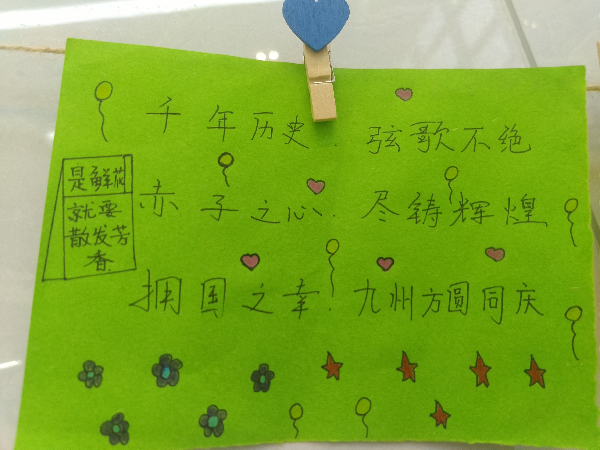 千年历史.弦歌不绝
是鲜花
就要
散发芳
香.
赤子之心.尽铸辉煌
拥国之幸.九州方圆同庆